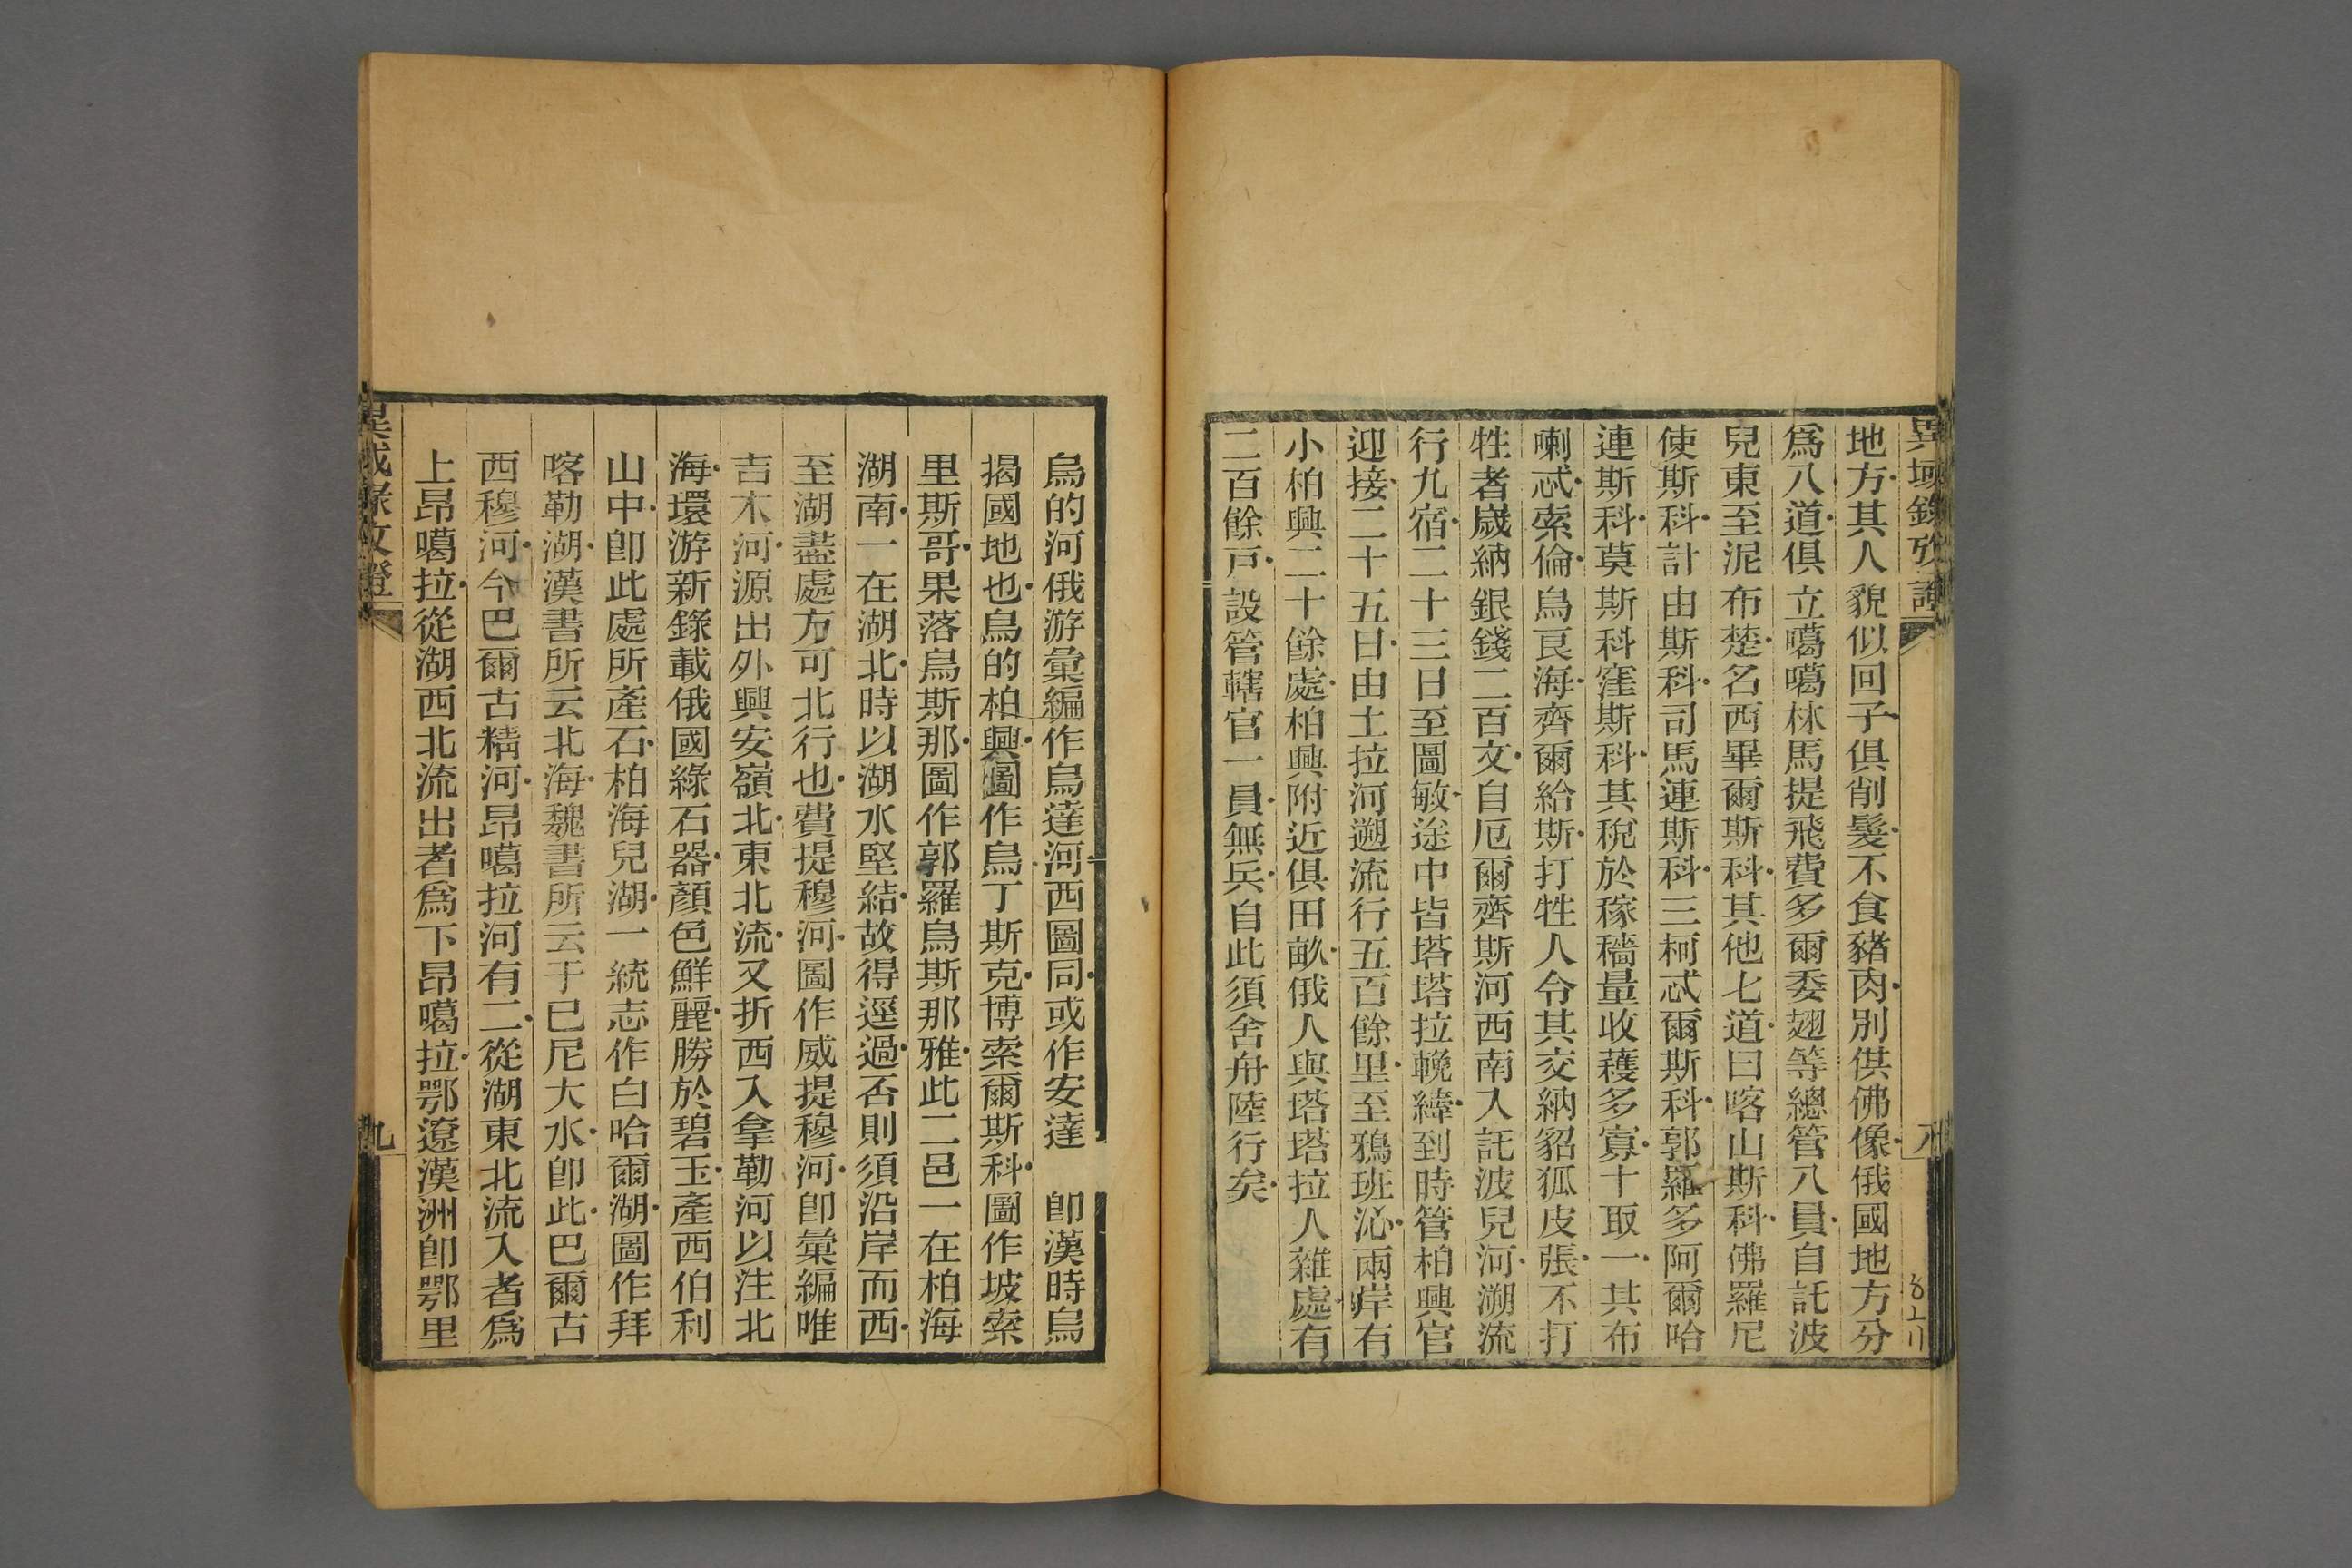 異域錄攷證
地方其人貌似回子俱削髮不食豬肉別供佛像俄國地方分
爲八道俱立噶噶林馬提飛費多爾委翅等總管八員自託波
兒東至泥布楚名西畢爾斯科其他七道曰喀山斯科佛羅尼
使斯科計由斯科司馬連斯科三柯忒爾斯科郭羅多阿爾哈
連斯科莫斯科窪斯科其稅於稼穡量收穫多寡十取一其布
喇忒索倫烏艮海齊爾給斯打牲人令其交納貂狐皮張不打
牲者歲納銀錢二百文自厄爾齊斯河西南入託波兒河溯流
行九宿二十三日至圖敏途中皆塔塔拉輓縴到時管柏興官
迎接二十五日由土拉河遡流行五百餘里至鴉班沁兩岸有
小柏興二十餘處柏興附近俱田畝俄人與塔塔拉人雜處有
二百餘戸設管轄官一員無兵自此須舍舟陸行矣
八
烏的河俄游彙編作烏達河西圖同或作安達 卽漢時烏
揭國地也烏的柏興圖作烏丁斯克博索爾斯科圖作坡索
里斯哥果落烏斯那圖作郭羅烏斯那雅此二邑一在柏海
湖南一在湖北時以湖水堅結故得逕過否則須沿岸而西
至湖盡處方可北行也費提穆河圖作威提穆河卽彙編唯
吉木河源出外興安嶺北東北流又折西入拿勒河以注北
海環游新錄載俄國綠石器顏色鮮麗勝於碧玉產西伯利
山中卽此處所產石柏海兒湖一統志作白哈爾湖圖作拜
喀勒湖漢書所云北海魏書所云于巳尼大水卽此巴爾古
西穆河今巴爾古精河昂噶拉河有二從湖東北流入者爲
上昂噶拉從湖西北流出者爲下昂噶拉鄂遼漢洲卽鄂里
異域錄攷證
九